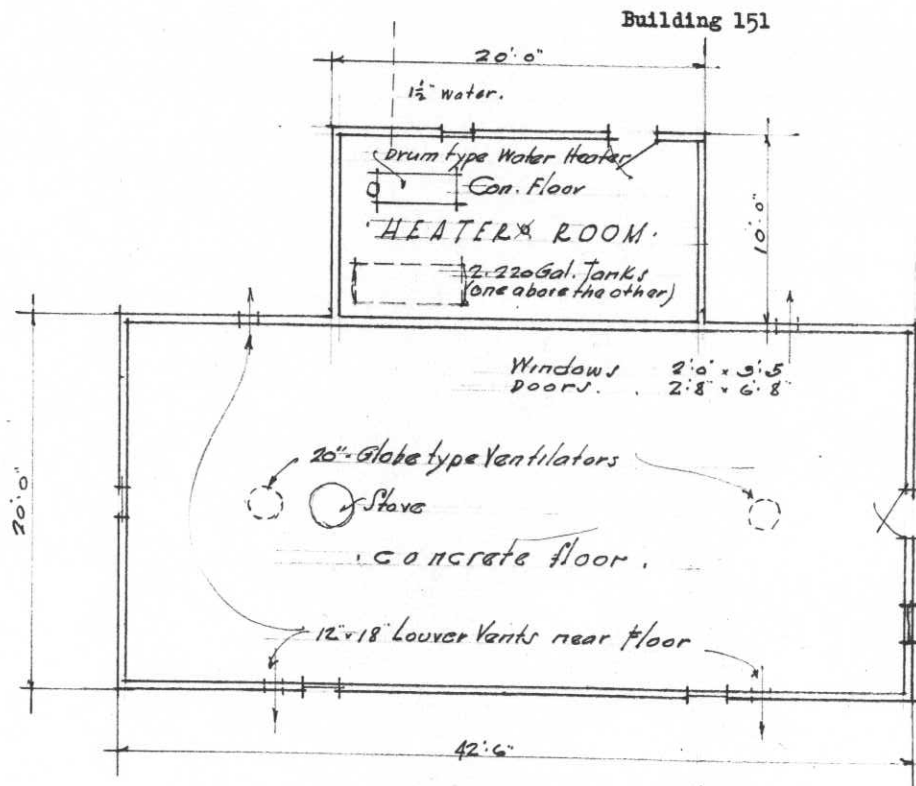 Building 151
20'-0"
1½" water.
Drum type Water Heater
Con. Floor
HEATER ROOM.
10'-0"
2-220 Gal. Tanks
(one above the other)
Windows 2'-0" x 3'-5"
Doors. . 2'-8" x 6'-8"
20" Globe type Ventilators
Stove
20'-0"
Concrete floor.
12" x 18" Louver Vents near Floor
42'-6"